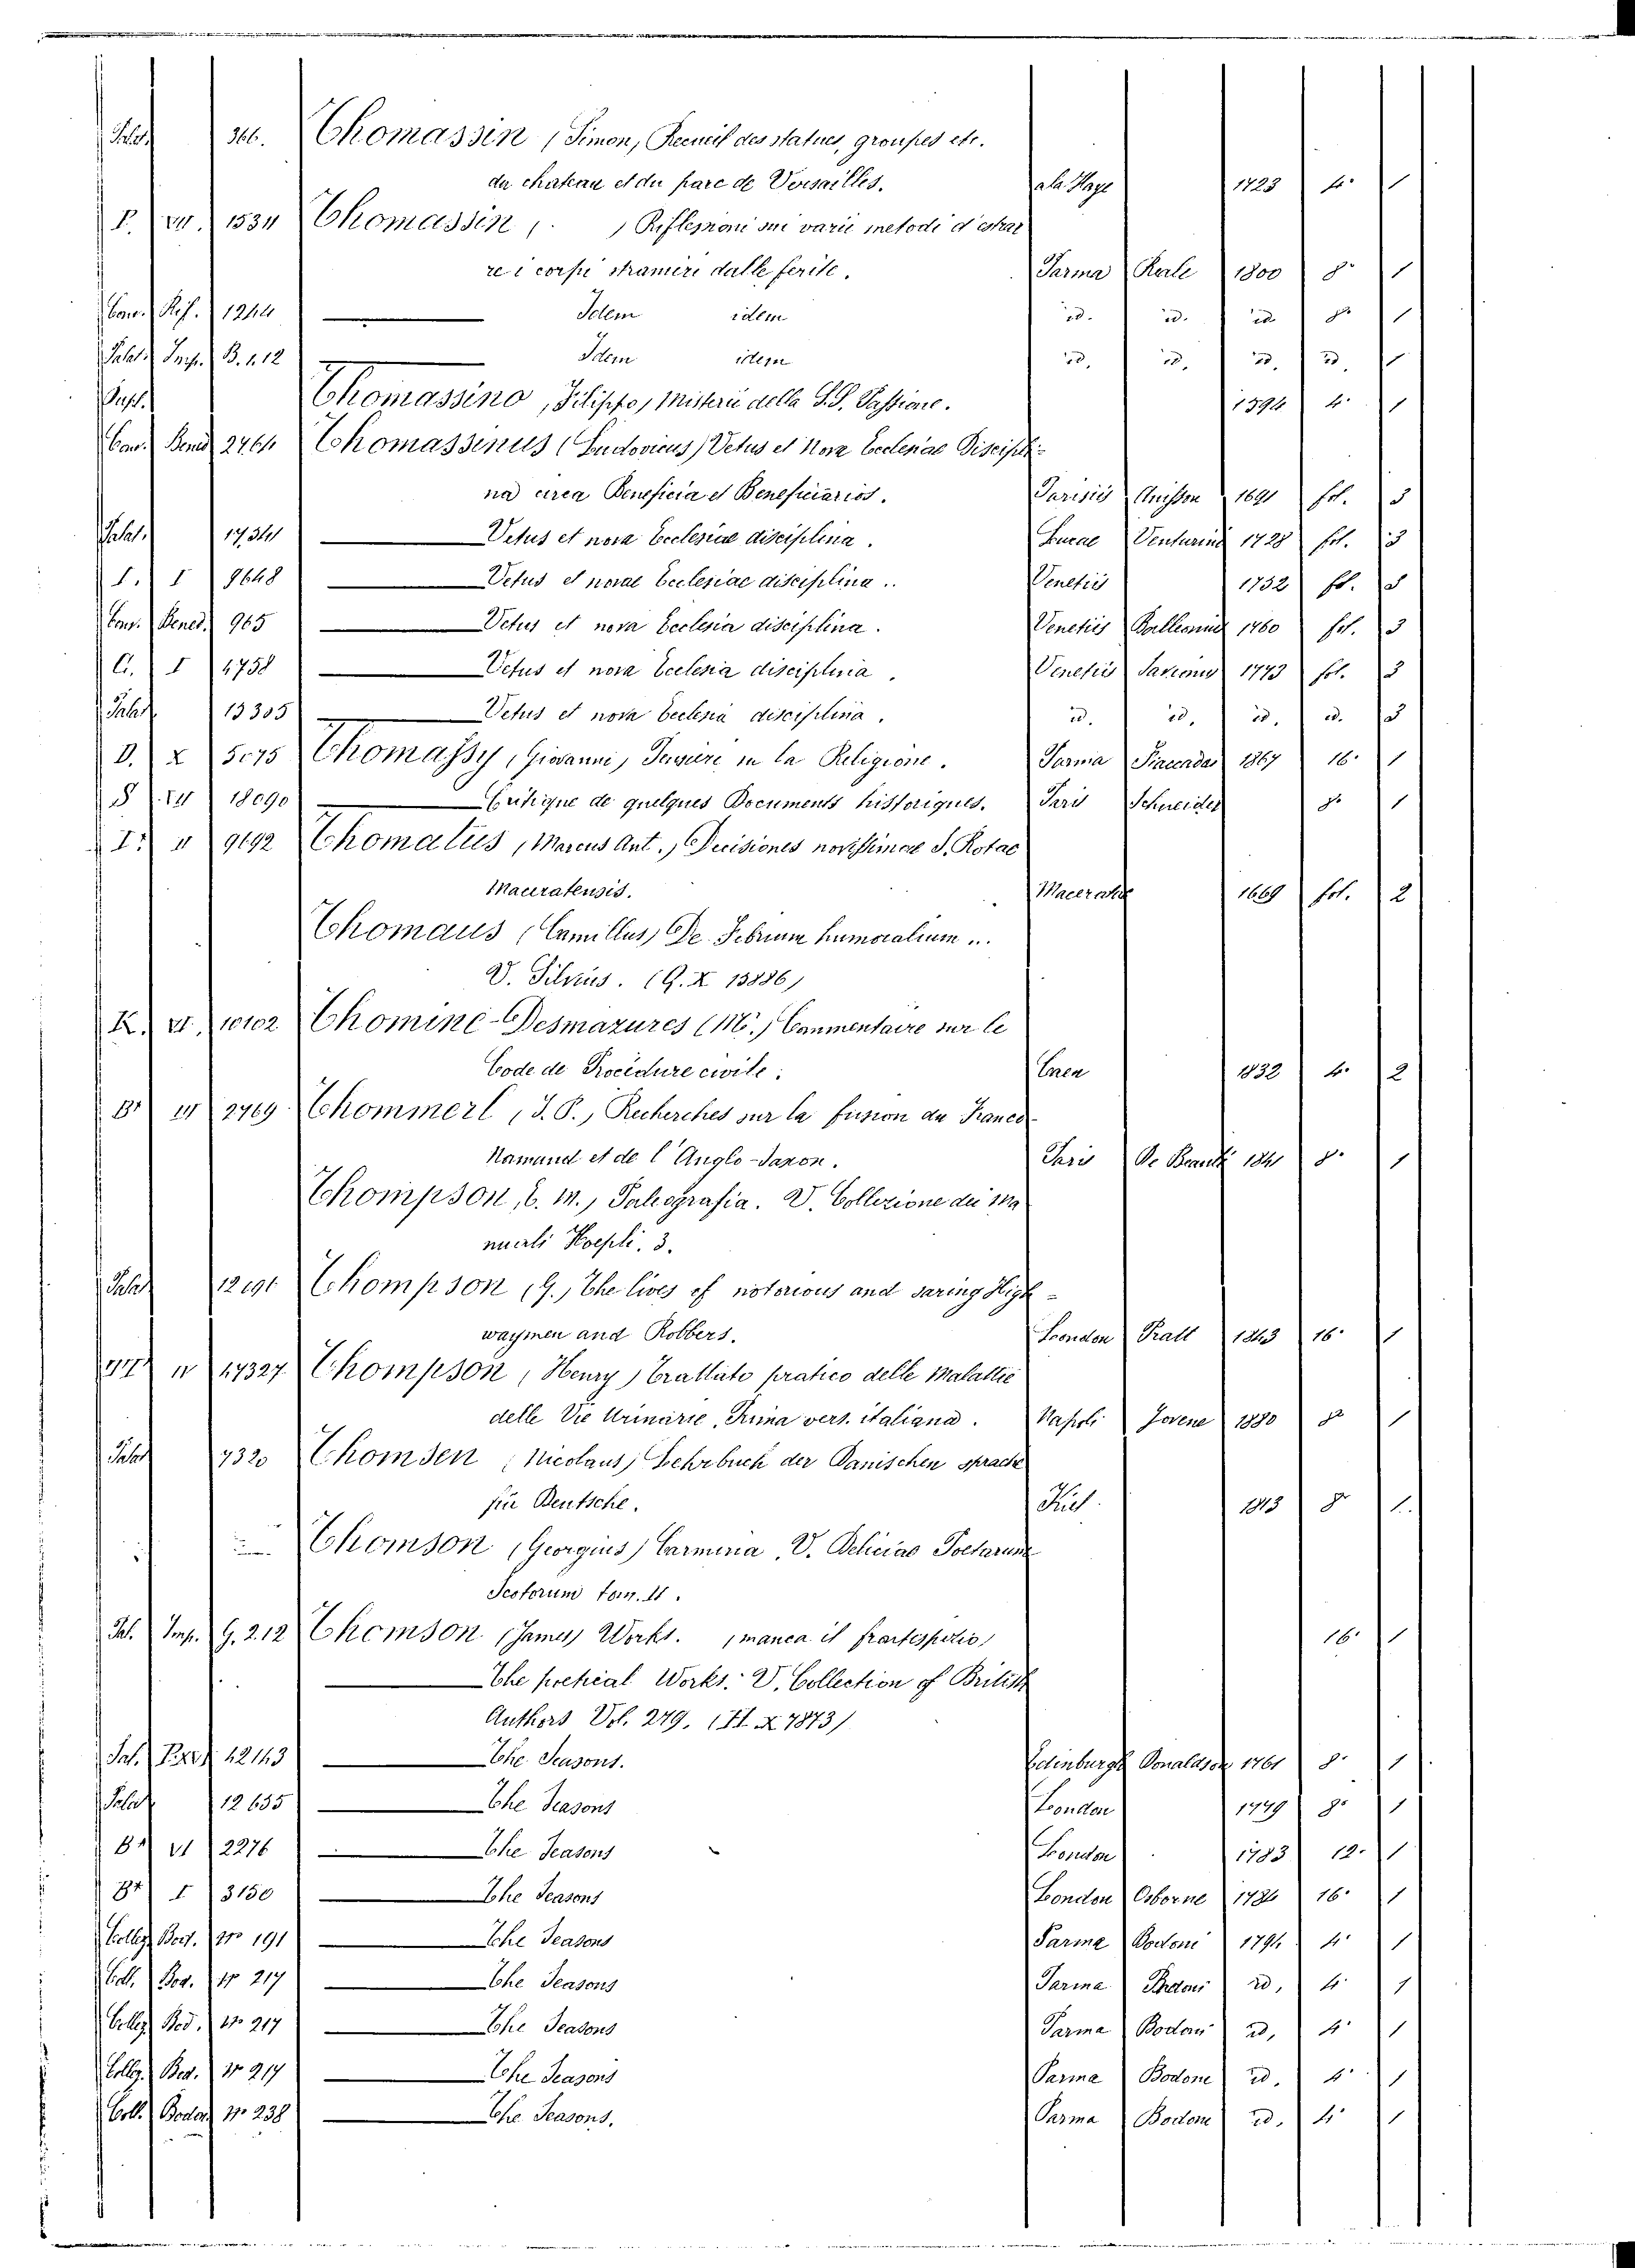 Palat. 366. Thomassin (Simon) Recueil des statues, groupes etc.
du chateau et du parc de Versailles. a la Haye 1723 4° 1
P. VII. 1534 Thomassin ( ) Riflessioni sui varii metodi d'estrar
re i corpi stranieri dalle ferite. Parma Reale 1800 8° 1
Conv. Rif. 1244 Idem idem id. id. id. 8° 1
Palat. Imp. B. 1.12 Idem idem id. id. id. id. 1
Suppl. Thomassino (Filippo) Misterii della S.S. Passione. 1594 4° 1
Conv. Bened. 2764 Thomassinus (Ludovicus) Vetus et Nova Ecclesiae Discipli-
na circa Beneficia et Beneficiarios. Parisiis Anisson 1691 fol. 3
Palat. 17341 Vetus et nova Ecclesiae disciplina. Lucae Venturini 1728 fol. 3
I. I 8648 Vetus et novae Ecclesiae disciplina.. Venetiis 1752 fol. 3
Conv. Bened. 965 Vetus et nova Ecclesia disciplina. Venetiis 1760 fol. 3
C. I 4758 Vetus et nova Ecclesia disciplina. Venetiis 1773 fol. 3
Palat. 13305 Vetus et nova Ecclesia disciplina. id. id. id. id. 3
D. X 5075 Thomassy (Giovanni) Pensieri in la Religione. Parma Fiaccadori 1867 16° 1
S IV 18090 Critique de quelques Documents historiques. Paris Schneider 8° 1
I. II 9692 Thomatus (Marcus Ant.) Decisiones novissimae S. Rotae
Maceratensis. Maceratae 1669 fol. 2
Thomaus (Camillus) De Febrium humoralium ...
V. Silvius. (G. X 13886)
K. VI. 10102 Thomine-Desmazures (Mr.) Commentaire sur le
Code de Procédure civile. Caen 1832 4° 2
B* IV 2769 Thommerel (J. P.) Recherches sur la fusion du Franco
Namand et de l'Anglo-Saxon. Paris 1841 8° 1
Thompson, E. M., Paleografia. V. Collezione dei Ma
nuali Hoepli. 3.
Palat. 12191 Thompson (G.) The lives of notorious and daring High-
waymen and Robbers. London Pratt 1843 16° 1
IV 17327 Thompson (Henry) Trattato pratico delle Malattie
delle Vie Urinarie. Prima vers. italiana. Napoli Jovene 1880 8° 1
Palat. 7320 Thomsen (Nicolaus) Lehrbuch der Danischen sprache
für Deutsche. Kiel 1813 8° 1.
Thomson (Georgius) Carmina. V. Deliciae Poetarum
Scotorum tom. II.
Pal. Imp. G. 2.12 Thomson (James) Works. (manca il frontespizio) 16° 1
The poetical Works. V. Collection of British
Authors Vol. 279. (H. X 7873)
Pal. 12143 The Seasons. Edinburgh Donaldson 1761 8° 1
Palat. 12655 The Seasons London 1779 8° 1
B* VI 2276 The Seasons London 1783 12° 1
B* I 3150 The Seasons London Osborne 1786 16° 1
Collez. Bod. N° 191 The Seasons Parma Bodoni 1794 4° 1
Coll. Bod. N° 217 The Seasons Parma Bodoni id. 4° 1
Collez. Bod. N° 217 The Seasons Parma Bodoni id. 4° 1
Collez. Bod. N° 217 The Seasons Parma Bodoni id. 4° 1
Coll. Bodon. N° 238 The Seasons. Parma Bodoni id. 4° 1